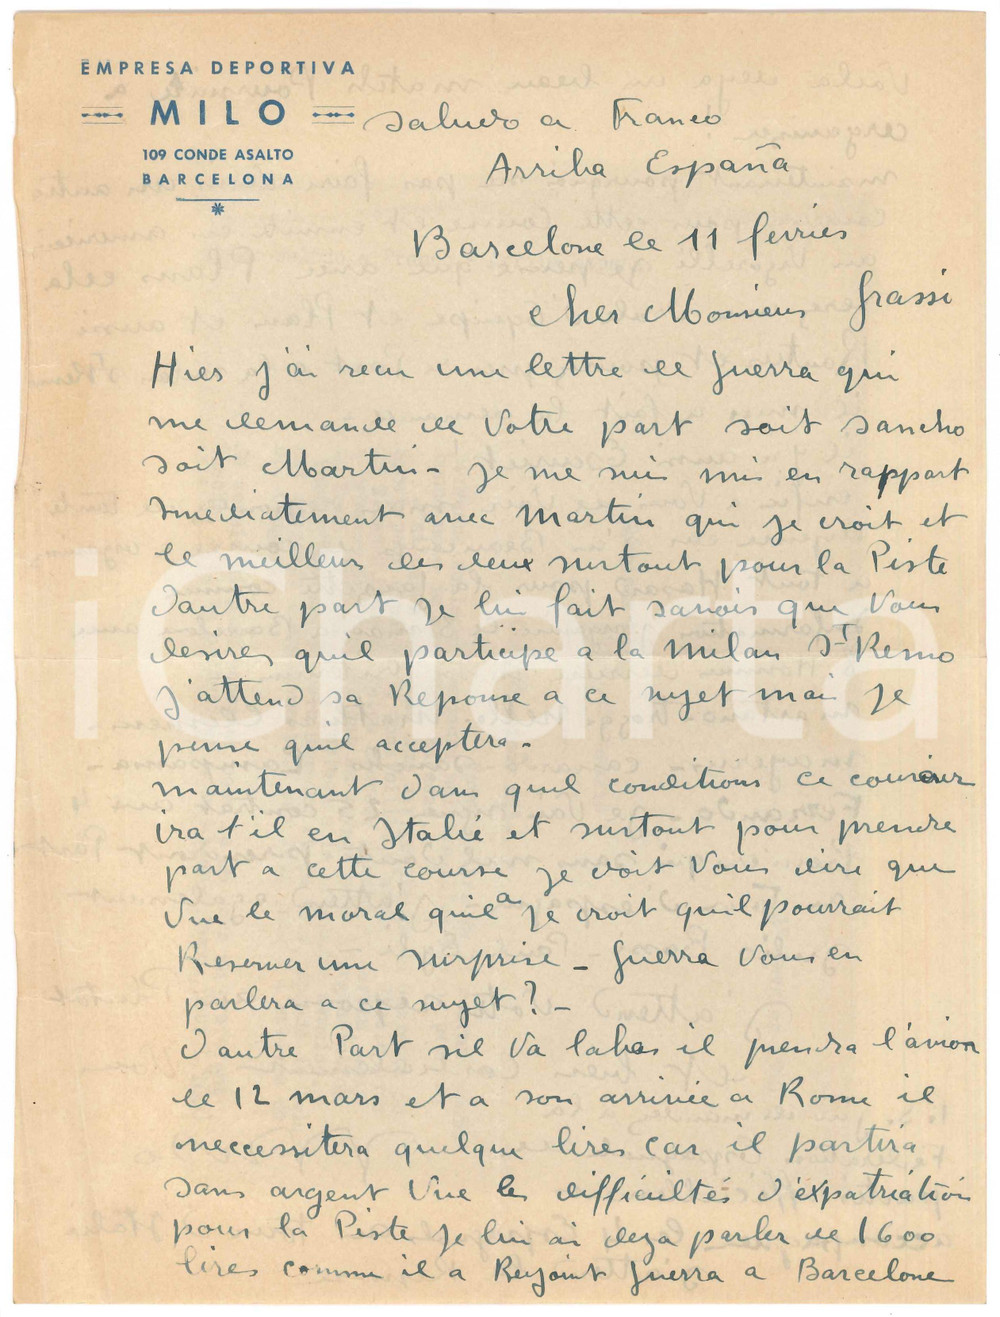 EMPRESA DEPORTIVA
MILO
109 CONDE ASALTO
BARCELONA
Saludo a Franco
Arriba España
Barcelone le 11 fevrier
Cher Monsieur Grassi
Hier j'ai recu une lettre de Guerra qui
me demande de Votre part soit Sancho
soit Martin - je me sui mis en rapport
Imediatement avec Martin qui je croit et
le meilleur des deux surtout pour la Piste
D'autre part je lui fait savoir que Vous
desirer quil participe a la Milan St Remo
J'attend sa Reponse a ce sujet mai je
pense quil acceptera -
maintenant Dans quel conditions ce coureur
ira t'il en Italie et surtout pour prendre
part a cette course je doit Vous dire que
Vue le moral quil a je croit quil pourrait
Reserver une surprise - Guerra Vous en
parlera a ce sujet? -
D'autre Part sil Va labas il prendra l'avion
le 12 mars et a son arrivée a Rome il
neccessitera quelque lires car il partira
sans argent Vue les difficultés d'éxpatriation
pour la Piste je lui ai deja parler de 1600
lires comme il a Rejoint Guerra a Barcelone
iCharta